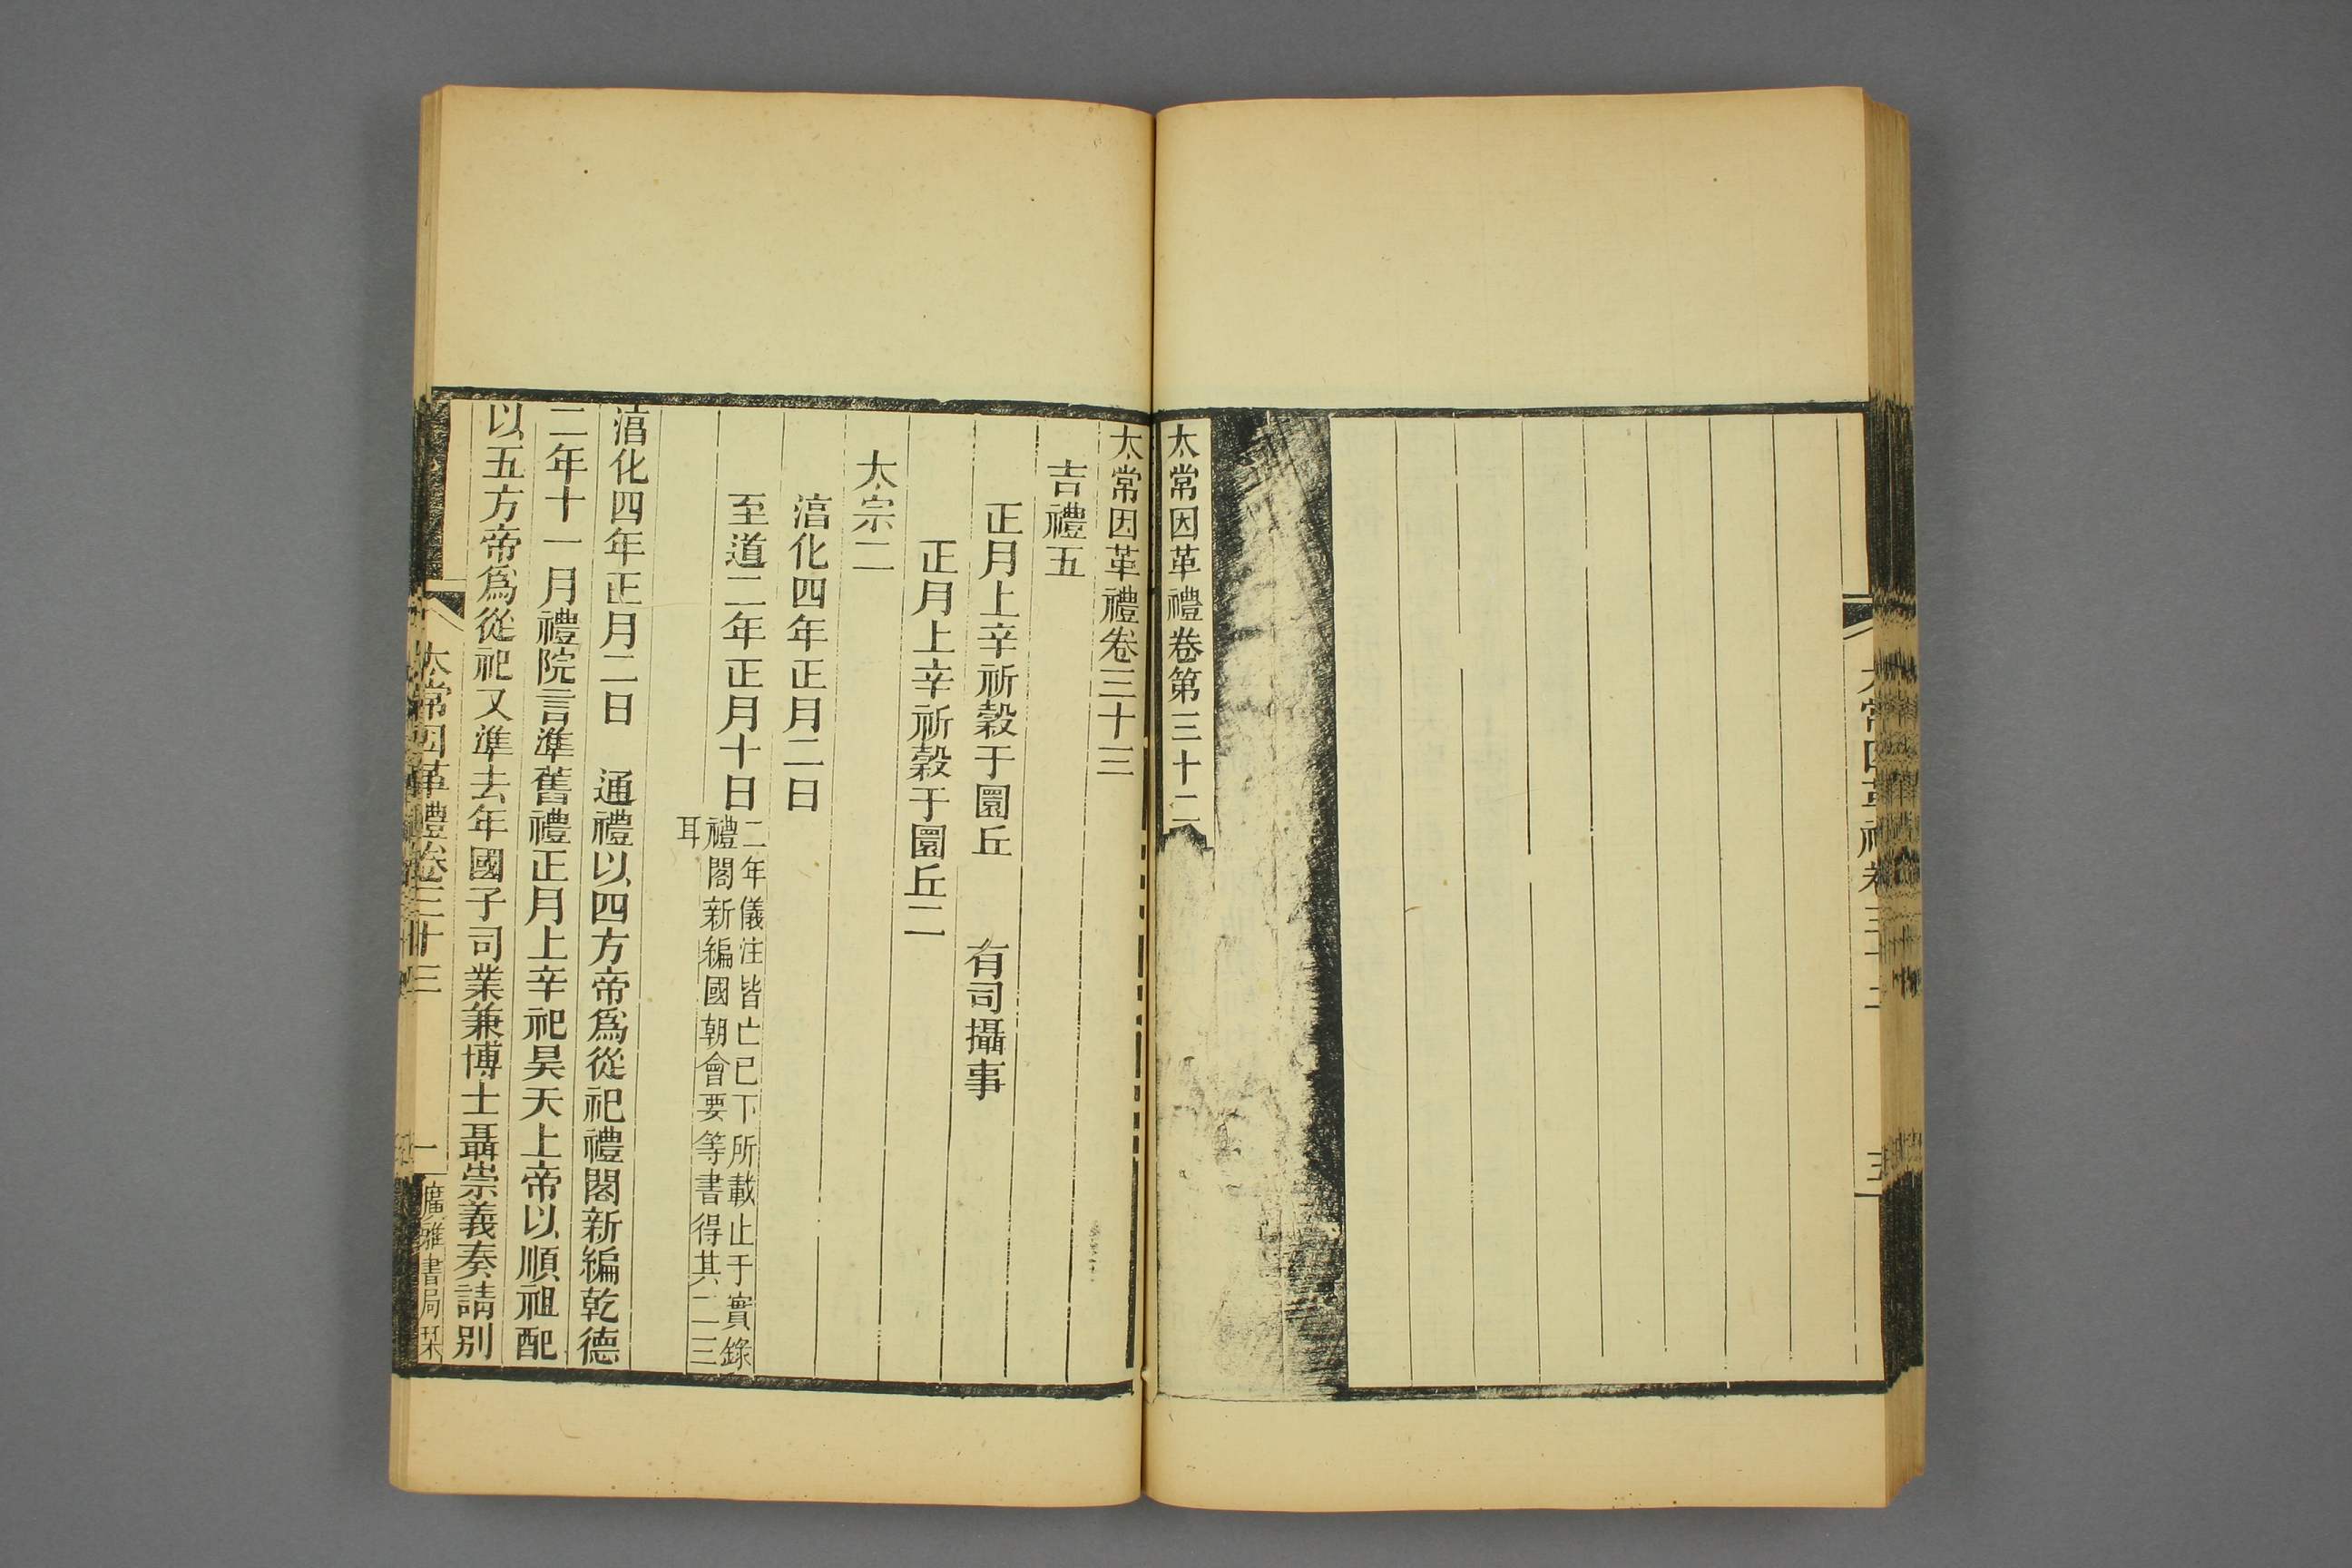 太常因革禮卷第三十二
太常因革禮卷三十三
吉禮五
正月上辛祈榖于圜丘　有司攝事
正月上辛祈榖于圜丘二
太宗二
淳化四年正月二日
至道二年正月十日
二年儀注皆亡已下所載止于實錄
禮閣新編國朝會要等書得其二三
耳
淳化四年正月二日　通禮以四方帝爲從祀禮閣新編乾德
二年十一月禮院言準舊禮正月上辛祀昊天上帝以順祖配
以五方帝爲從祀又準去年國子司業兼博士聶崇義奏請別
太常因革禮卷三十三
一
廣雅書局栞